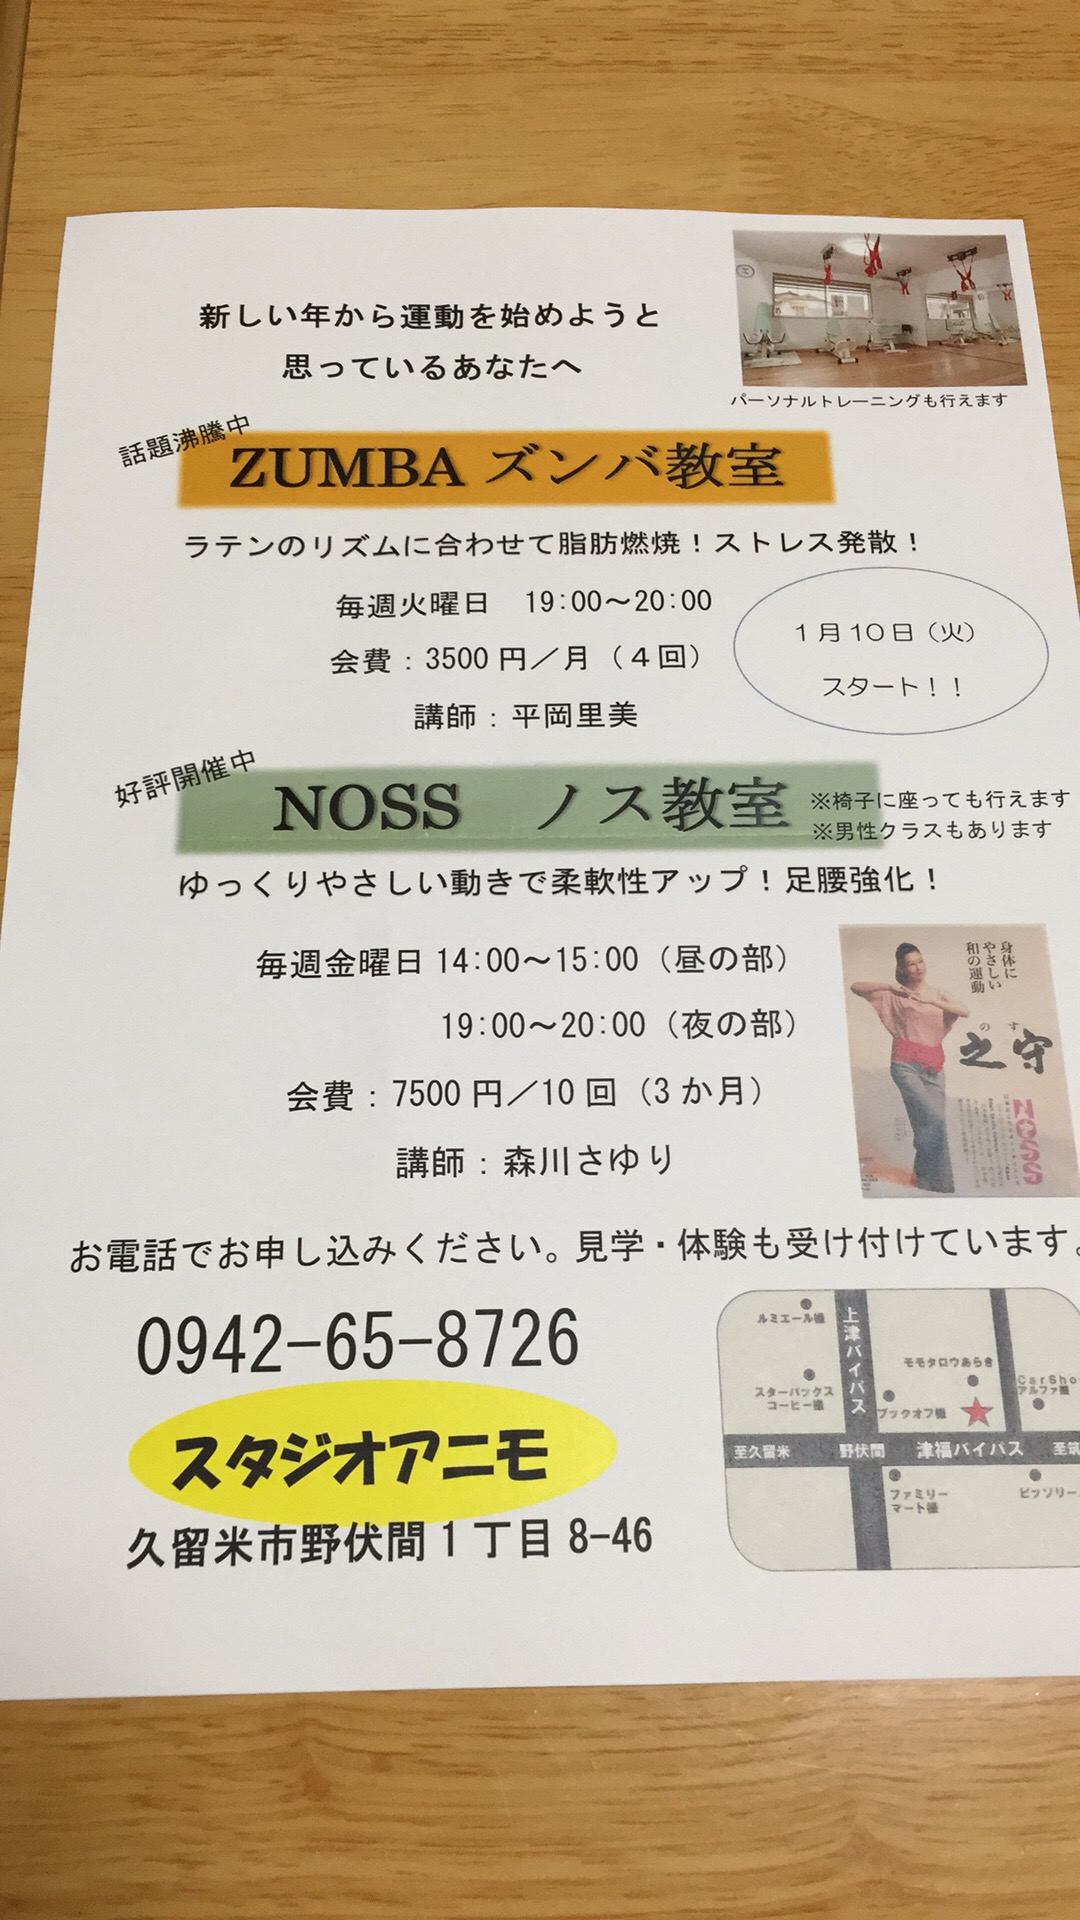 新しい年から運動を始めようと
思っているあなたへ
パーソナルトレーニングも行えます
話題沸騰中
ZUMBA ズンバ教室
ラテンのリズムに合わせて脂肪燃焼！ストレス発散！
毎週火曜日 19:00～20:00
会費：3500円／月（４回）
講師：平岡里美
１月10日（火）
スタート！！
好評開催中
NOSS ノス教室
※椅子に座っても行えます
※男性クラスもあります
ゆっくりやさしい動きで柔軟性アップ！足腰強化！
毎週金曜日 14:00～15:00（昼の部）
19:00～20:00（夜の部）
会費：7500円／10回（3か月）
講師：森川さゆり
身体に
やさしい
和の運動
のす
之守
NOSS
お電話でお申し込みください。見学・体験も受け付けています。
0942-65-8726
スタジオアニモ
久留米市野伏間1丁目8-46
ルミエール様
上津バイパス
モモタロウあらき
スターバックス
コーヒー様
ブックオフ様
CarSho
アルファ様
至久留米
野伏間
津福バイパス
至筑
ファミリー
マート様
ピッツリー